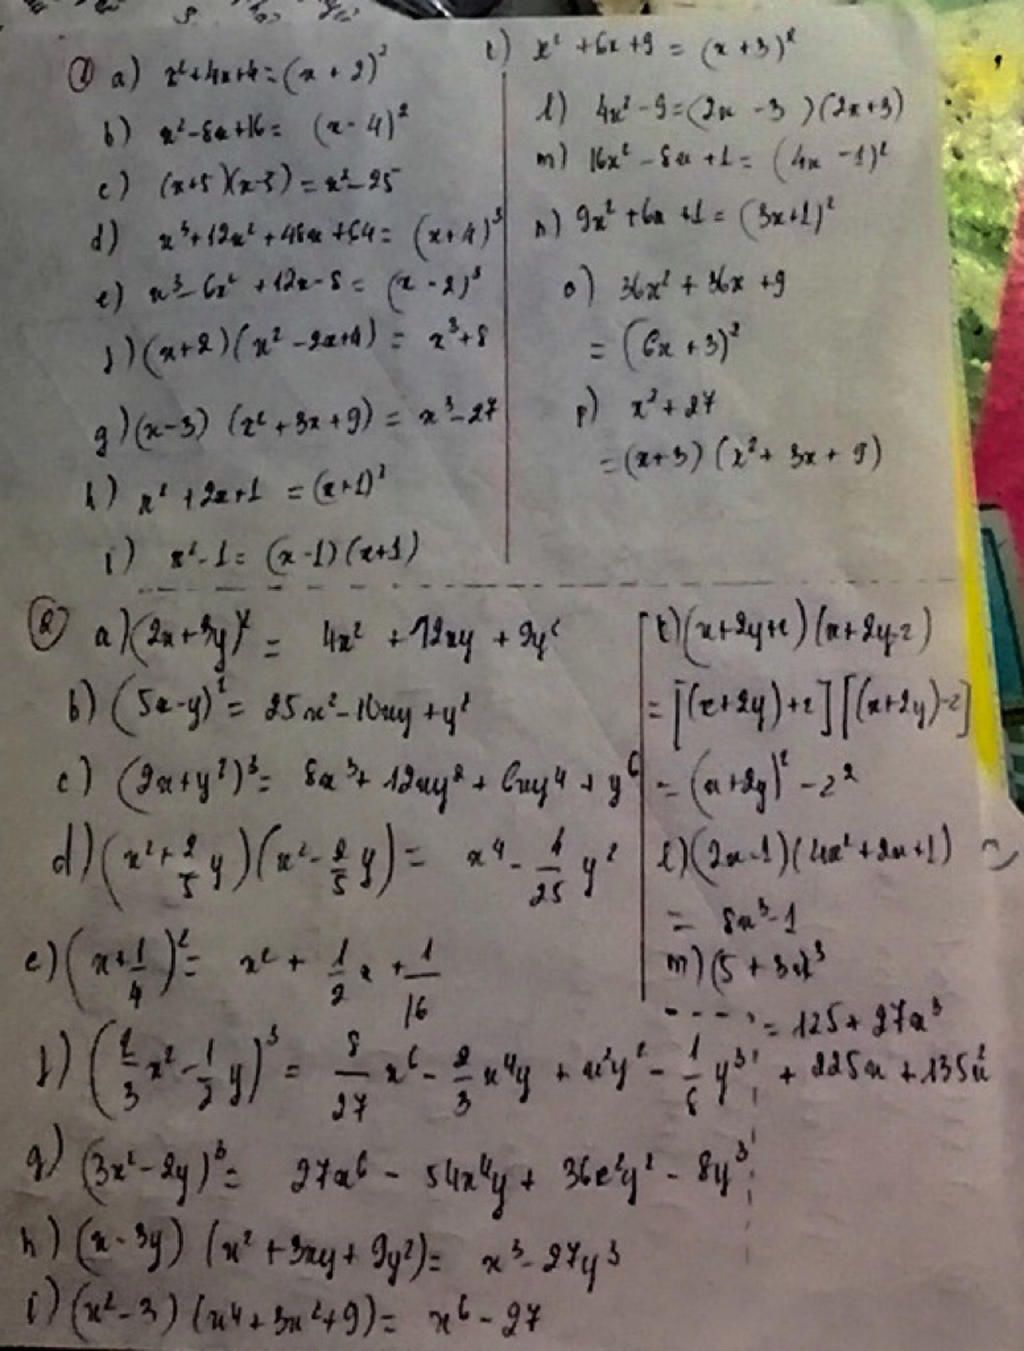 1) a) x² + 4x + 4 = (x + 2)²
b) x² - 8x + 16 = (x - 4)²
c) (x+5)(x-5) = x² - 25
d) x³ + 12x² + 48x + 64 = (x+4)³
e) x³ - 6x² + 12x - 8 = (x - 2)³
f) (x+2)(x² - 2x+4) = x³+8
g) (x-3) (x² + 3x + 9) = x³ - 27
h) x² + 2x+1 = (x+1)²
i) x² - 1 = (x-1)(x+1)
k) x² + 6x + 9 = (x + 3)²
l) 4x² - 9 = (2x - 3)(2x+3)
m) 16x² - 8x + 1 = (4x - 1)²
n) 9x² + 6x + 1 = (3x+1)²
o) 36x² + 36x + 9
= (6x + 3)²
p) x³ + 27
= (x+3) (x² + 3x + 9)
2) a) (2x+3y)² = 4x² + 12xy + 9y²
b) (5x-y)² = 25x² - 10xy + y²
c) (2x+y²)³ = 8x³ + 12xy² + 6xy⁴ + y⁶
d) (x² + 2/5 y)(x² - 2/5 y) = x⁴ - 4/25 y²
e) (x + 1/4)² = x² + 1/2 x + 1/16
f) (2/3 x² - 1/2 y)³ = 8/27 x⁶ - 2/3 x⁴y + x²y² - 1/8 y³
g) (3x² - 2y)³ = 27x⁶ - 54x⁴y + 36x²y² - 8y³
h) (x - 3y) (x² + 3xy + 9y²) = x³ - 27y³
i) (x² - 3) (x⁴ + 3x² + 9) = x⁶ - 27
k) (x+2y+z)(x+2y-z)
= [(x+2y)+z][(x+2y)-z]
= (x+2y)² - z²
l) (2x-1)(4x² + 2x+1)
= 8x³ - 1
m) (5 + 3x)³
= 125 + 27x³
+ 225x + 135x²